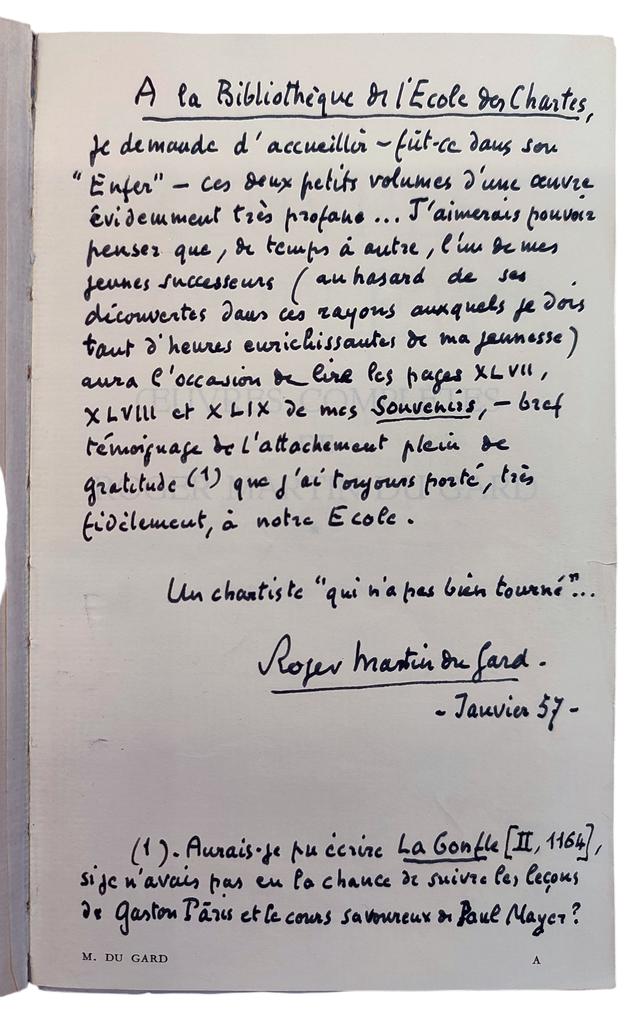 A la Bibliothèque de l'Ecole des Chartes,
je demande d'accueillir – fût-ce dans son
"Enfer" – ces deux petits volumes d'une œuvre
évidemment très profane... J'aimerais pouvoir
penser que, de temps à autre, l'un de mes
jeunes successeurs (au hasard de ses
découvertes dans ces rayons auxquels je dois
tant d'heures enrichissantes de ma jeunesse)
aura l'occasion de lire les pages XLVII,
XLVIII et XLIX de mes Souvenirs, – bref
témoignage de l'attachement plein de
gratitude (1) que j'ai toujours porté, très
fidèlement, à notre Ecole.
Un chartiste "qui n'a pas bien tourné"...
Roger Martin du Gard.
- Janvier 57 -
(1). Aurais-je pu écrire La Gonfle [II, 1164],
si je n'avais pas eu la chance de suivre les leçons
de Gaston Pâris et le cours savoureux de Paul Mayer?
M. DU GARD A
ŒUVRES COMPLÈTES
ROGER MARTIN DU GARD